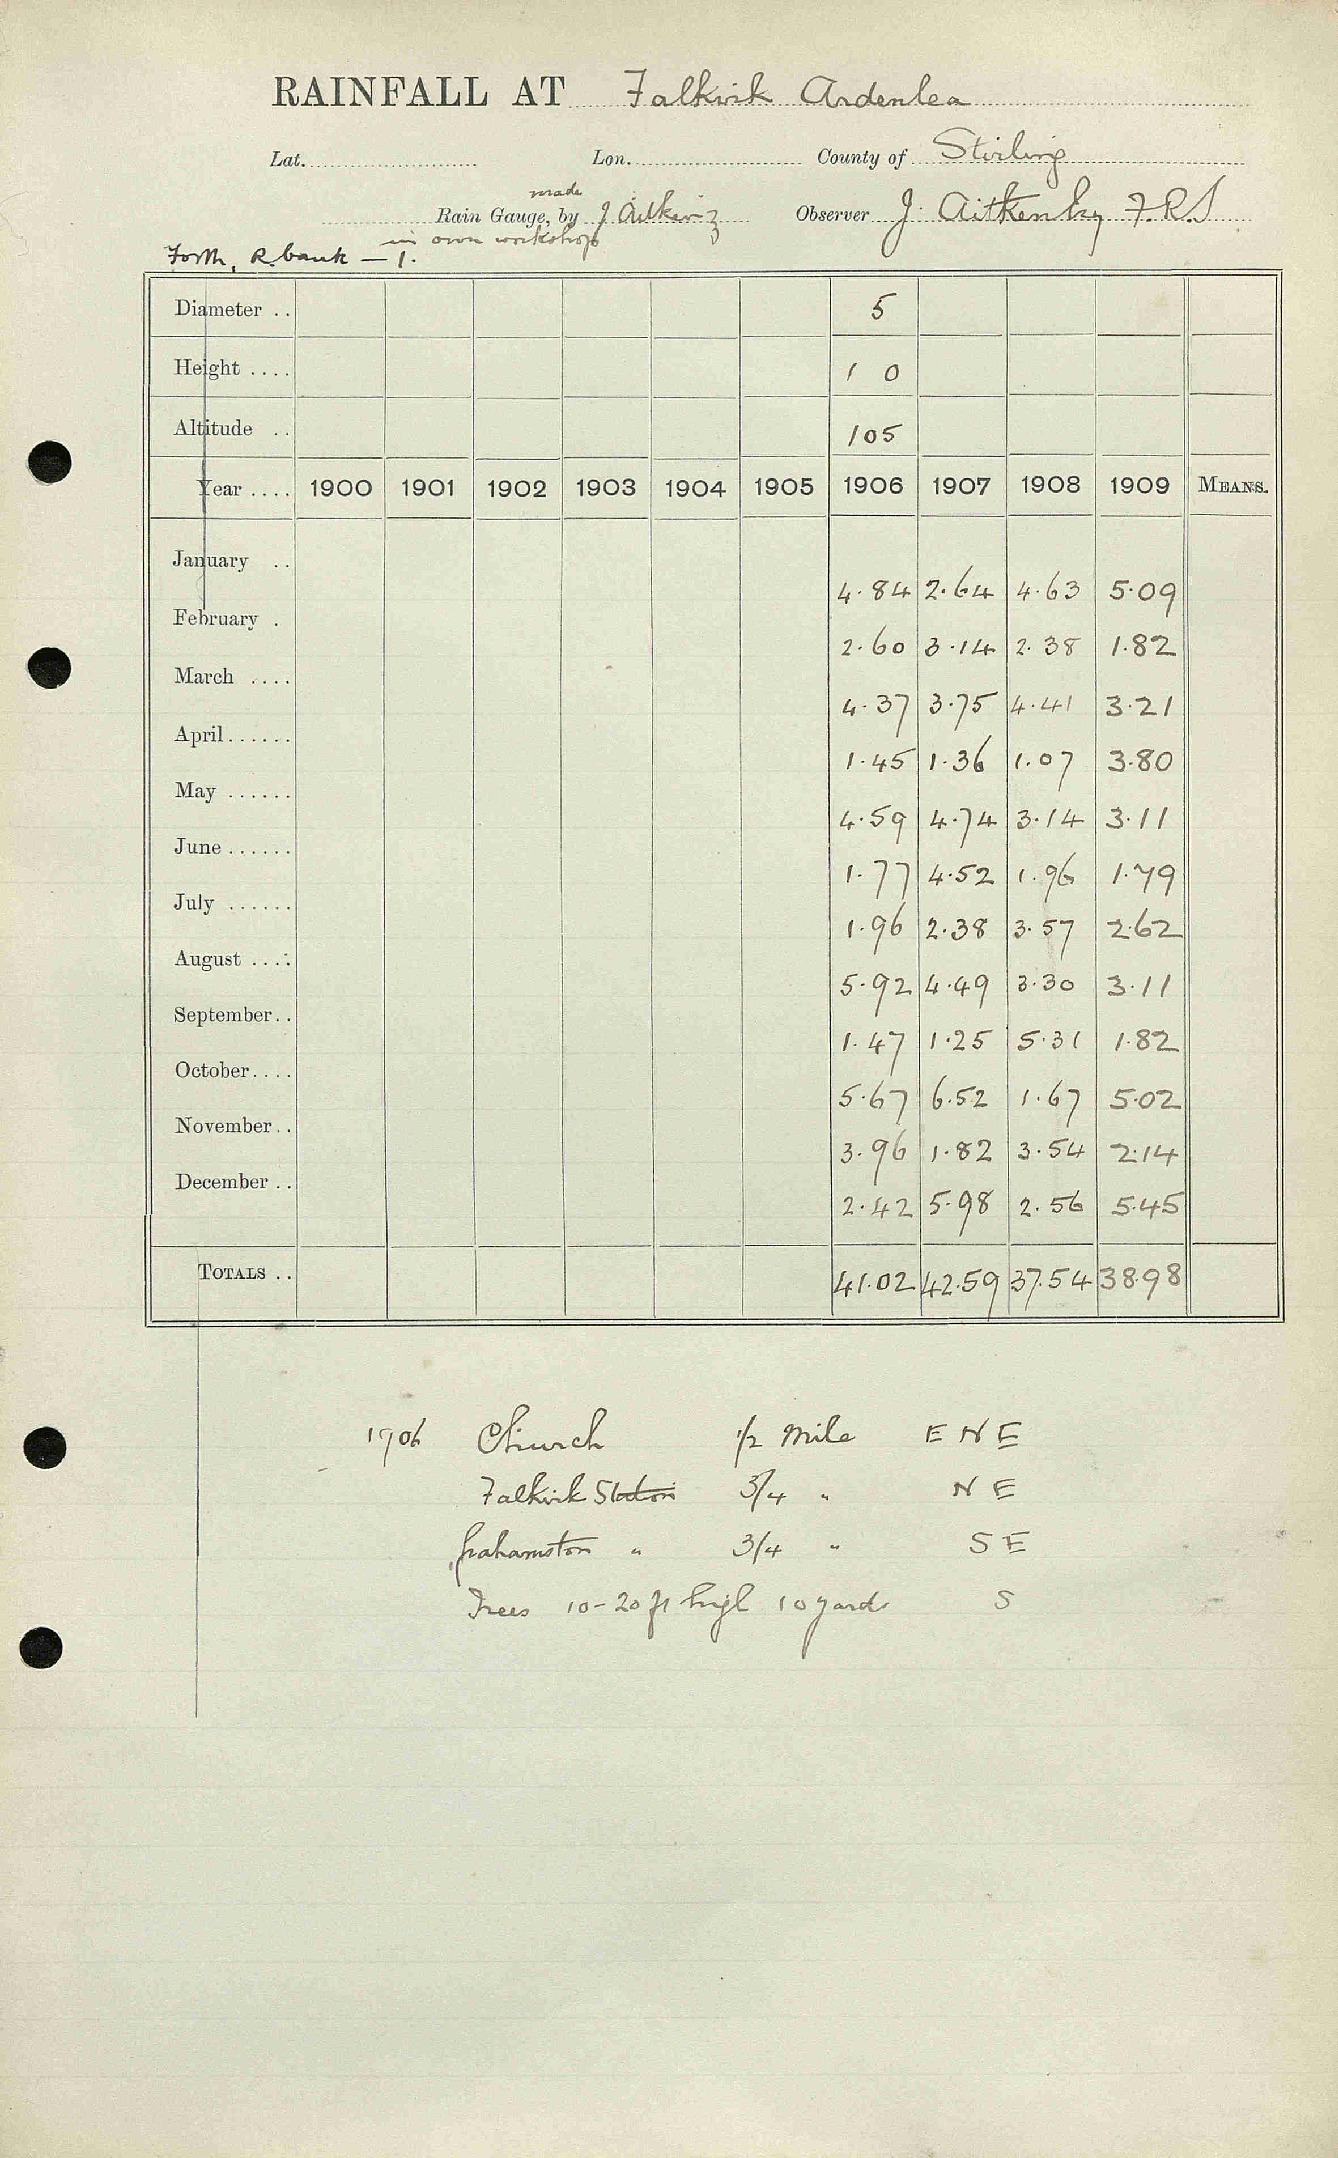 RAINFALL AT Falkirk Ardenlea
Lat. Lon. County of Stirling
made
Rain Gauge, by J Aitken Observer J. Aitken Esq F.R.S
in own workshop
Forth, R. bank – 1.
Diameter .. 5
Height .... 1 0
Altitude .. 105
Year .... 1900 1901 1902 1903 1904 1905 1906 1907 1908 1909 MEANS.
January .. 4.84 2.64 4.63 5.09
February . 2.60 3.14 2.38 1.82
March .... 4.37 3.75 4.41 3.21
April ...... 1.45 1.36 1.07 3.80
May ...... 4.59 4.74 3.14 3.11
June ...... 1.77 4.52 1.96 1.79
July ...... 1.96 2.38 3.57 2.62
August .... 5.92 4.49 3.30 3.11
September .. 1.47 1.25 5.31 1.82
October .... 5.67 6.52 1.67 5.02
November .. 3.96 1.82 3.54 2.14
December .. 2.42 5.98 2.56 5.45
TOTALS .. 41.02 42.59 37.54 38.98
1906 Church 1/2 Mile E N E
Falkirk Station 3/4 " N E
Grahamston " 3/4 " S E
Trees 10-20 ft high 10 yards S